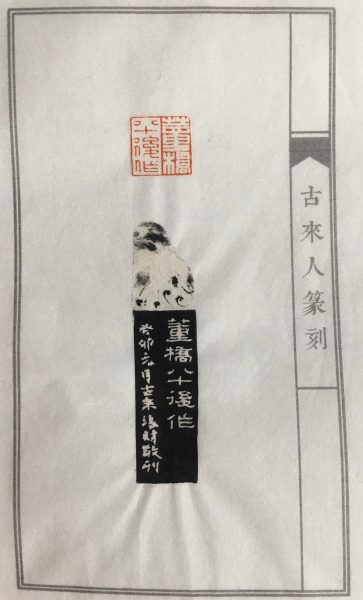 古來人篆刻
董橋
八十後作
董橋八十後作
癸卯元月古來敬刊